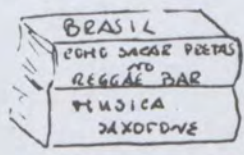 BRASIL
COMO SACAR PLETAS
NO
REGGAE BAR
MUSICA
SAXOFONE